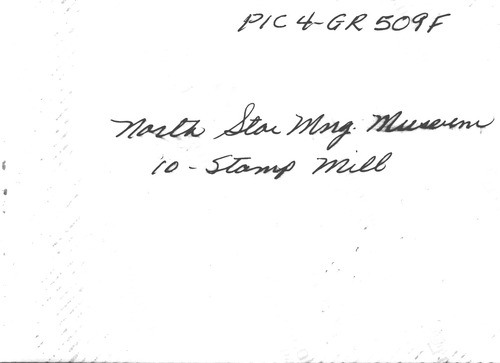 PIC 4-GR 509F
North Star Mng. Museum
10-Stamp Mill